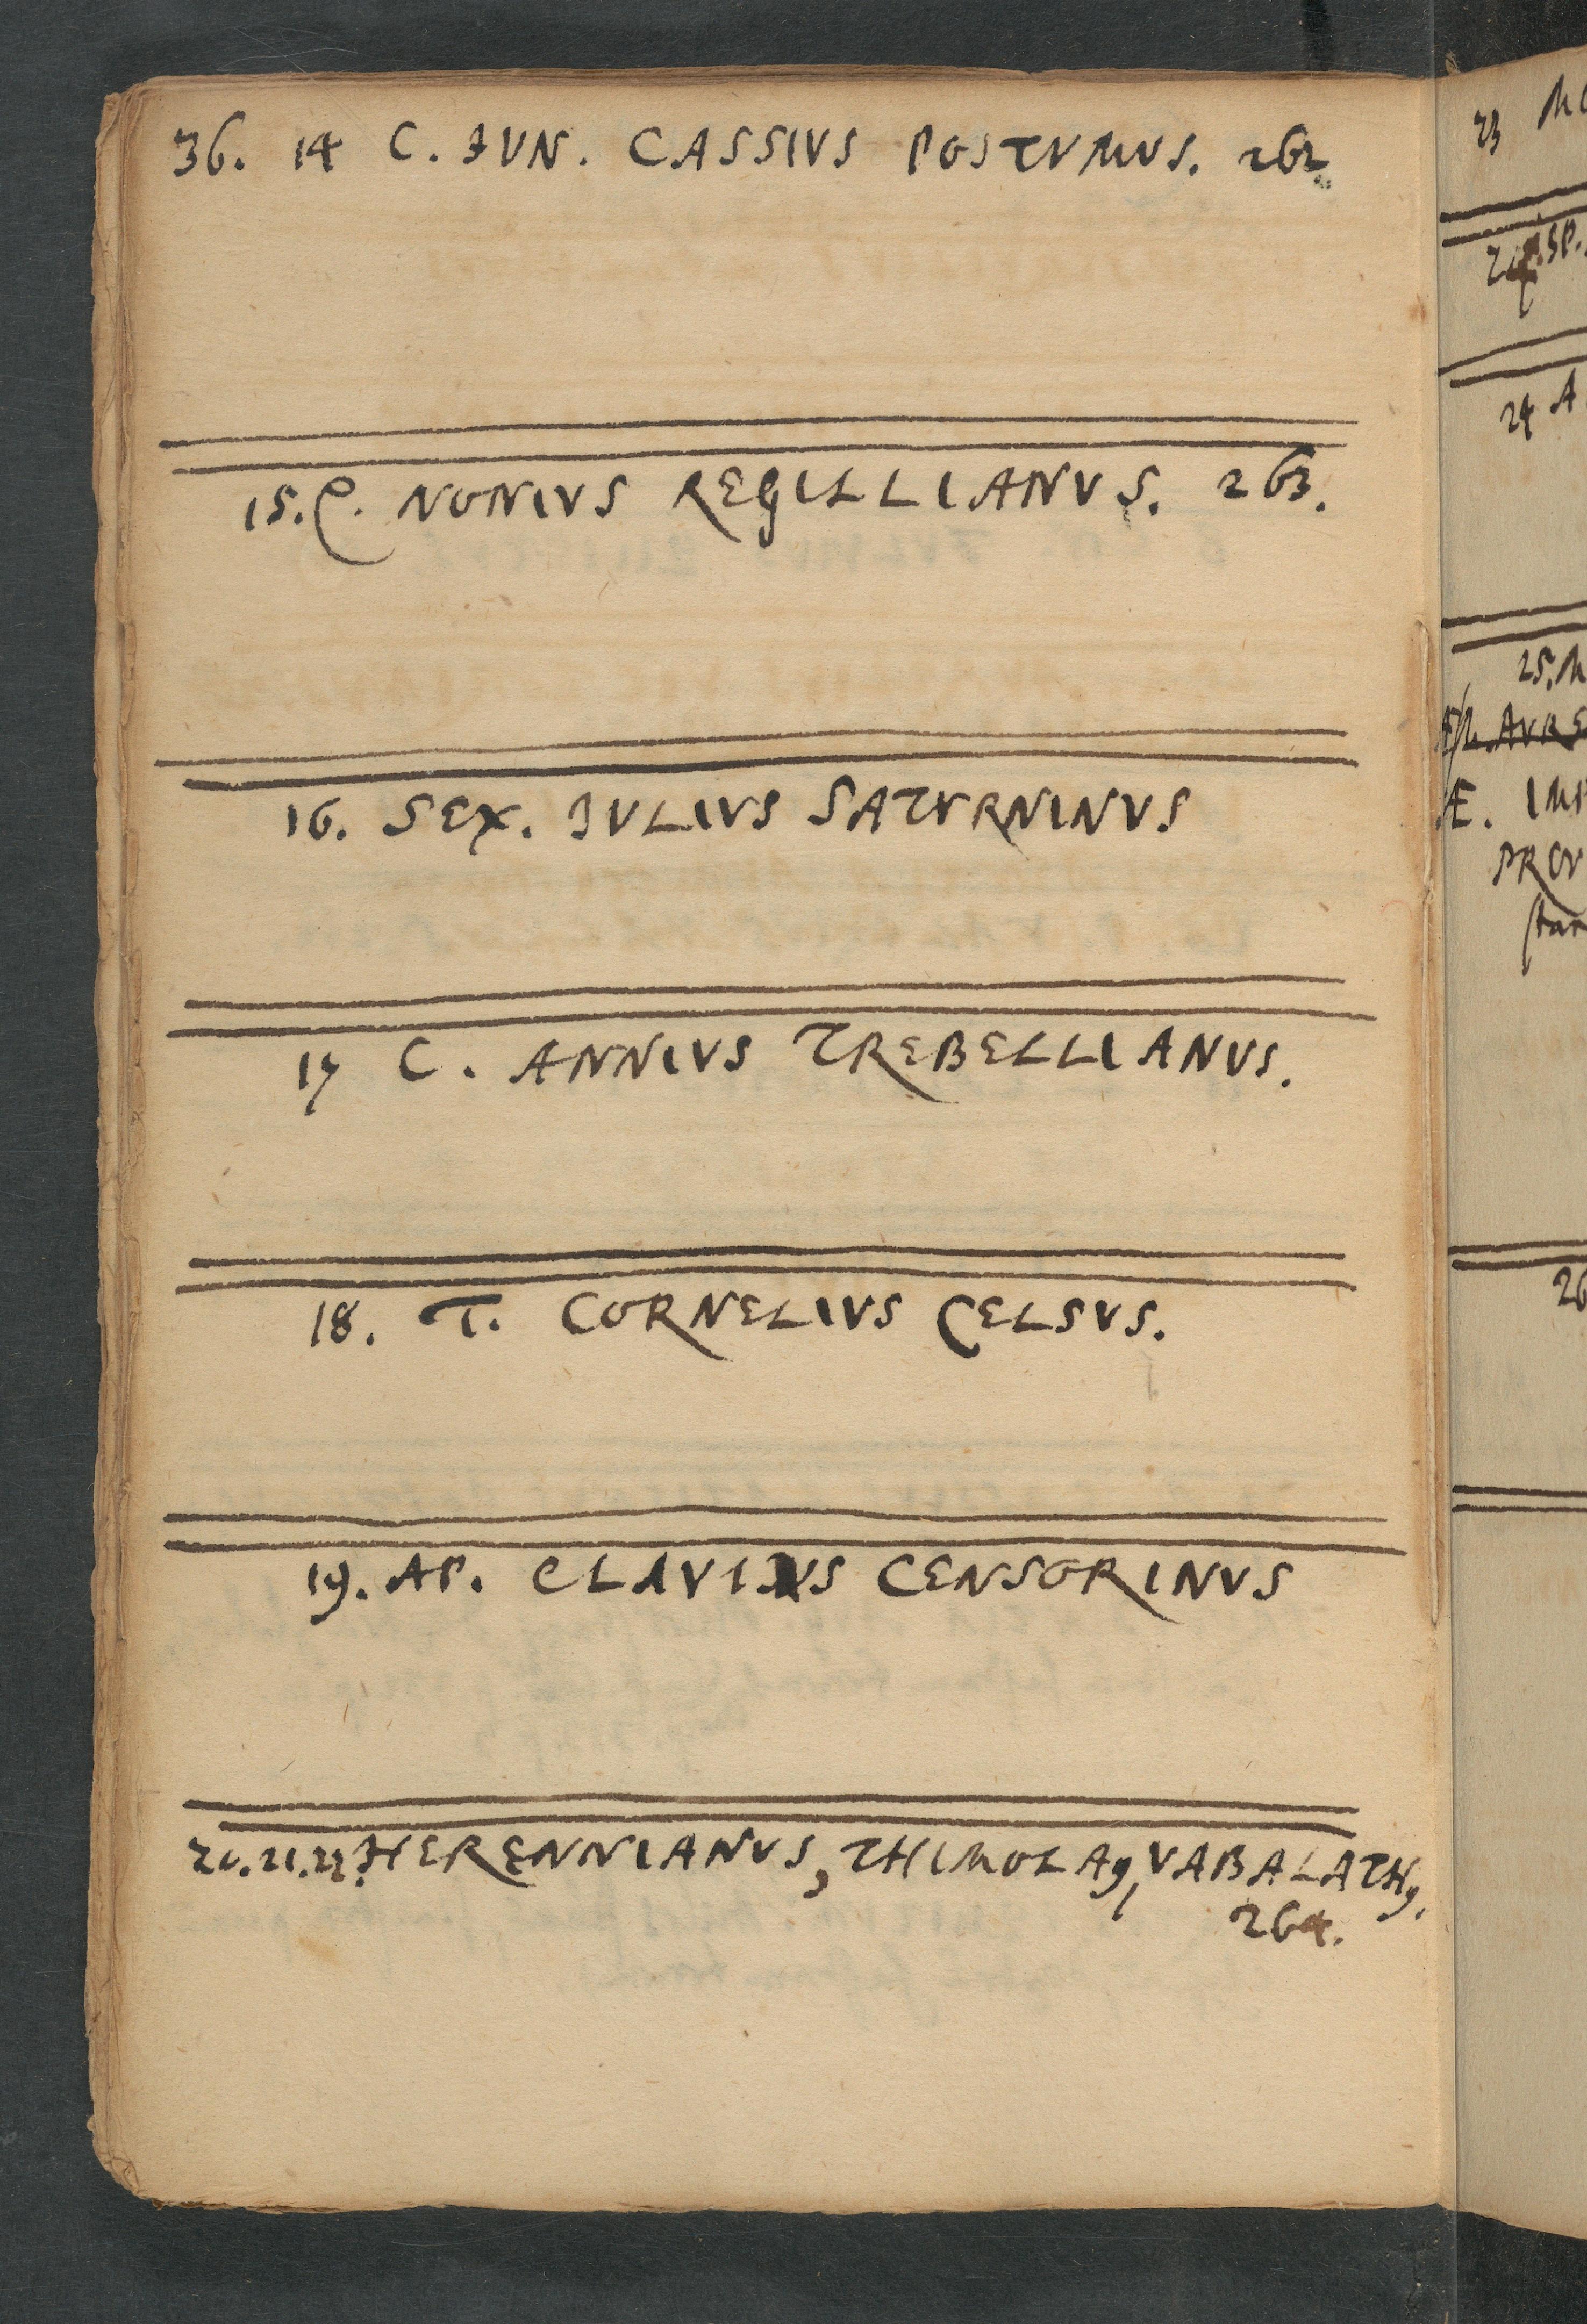 36. 14 C. IVN. CASSIVS POSTVMVS. 262.
15. Q. NONIVS REGILLIANVS. 263.
16. SEX. IVLIVS SATVRNINVS
17 C. ANNIVS TREBELLIANVS.
18. T. CORNELIVS CELSVS.
19. AP. CLAVIVS CENSORINVS
20. 21. 22. HERENNIANVS, THIMOLAꝰ, VABALATHꝰ.
264.
23
24. SP.
24 A
25. M
Æ. IMP
PROV
26